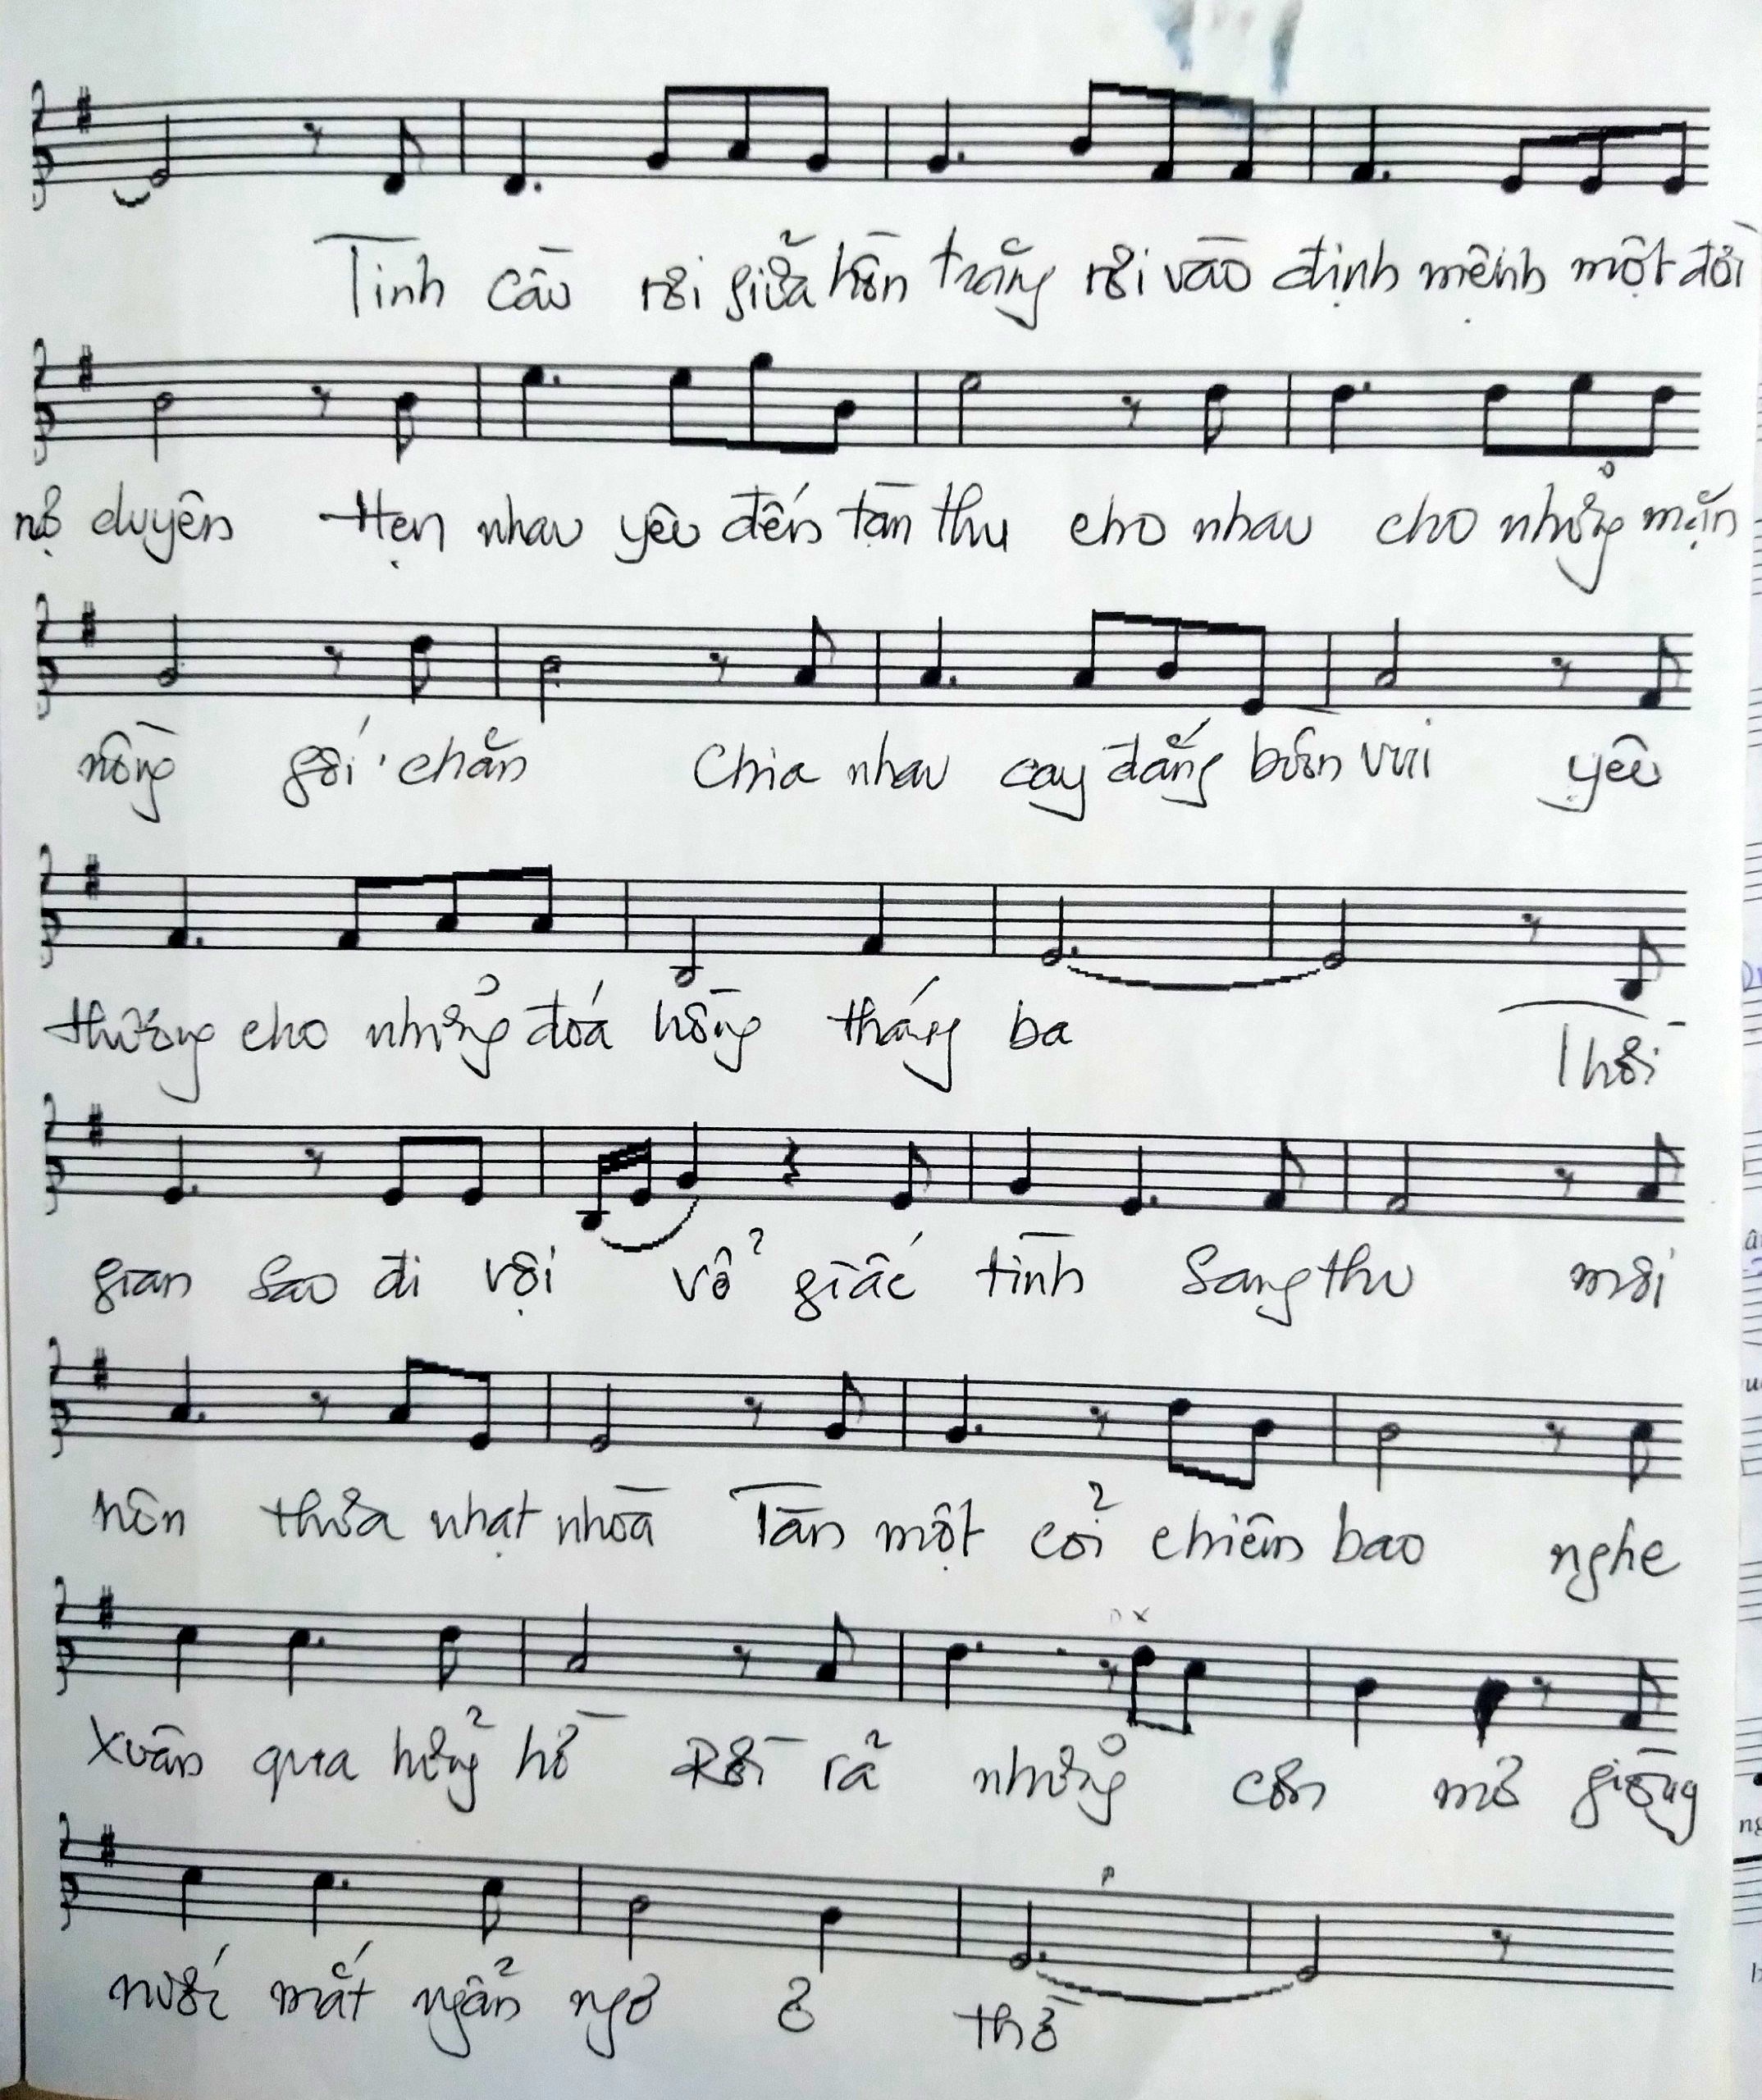 Tình cầu rơi giữa hồn trăng rơi vào định mệnh một đời
nợ duyên Hẹn nhau yêu đến tàn thu cho nhau cho những mặn
nồng gối chăn Chia nhau cay đắng buồn vui yêu
thương cho những đoá hồng tháng ba Thời
gian sao đi vội vỗ giấc tình Sang thu môi
hôn thừa nhạt nhoà Tàn một cõi chiêm bao nghe
Xuân qua hững hờ Rồi rã những cơn mơ giòng
nước mắt ngẩn ngơ ơ thờ